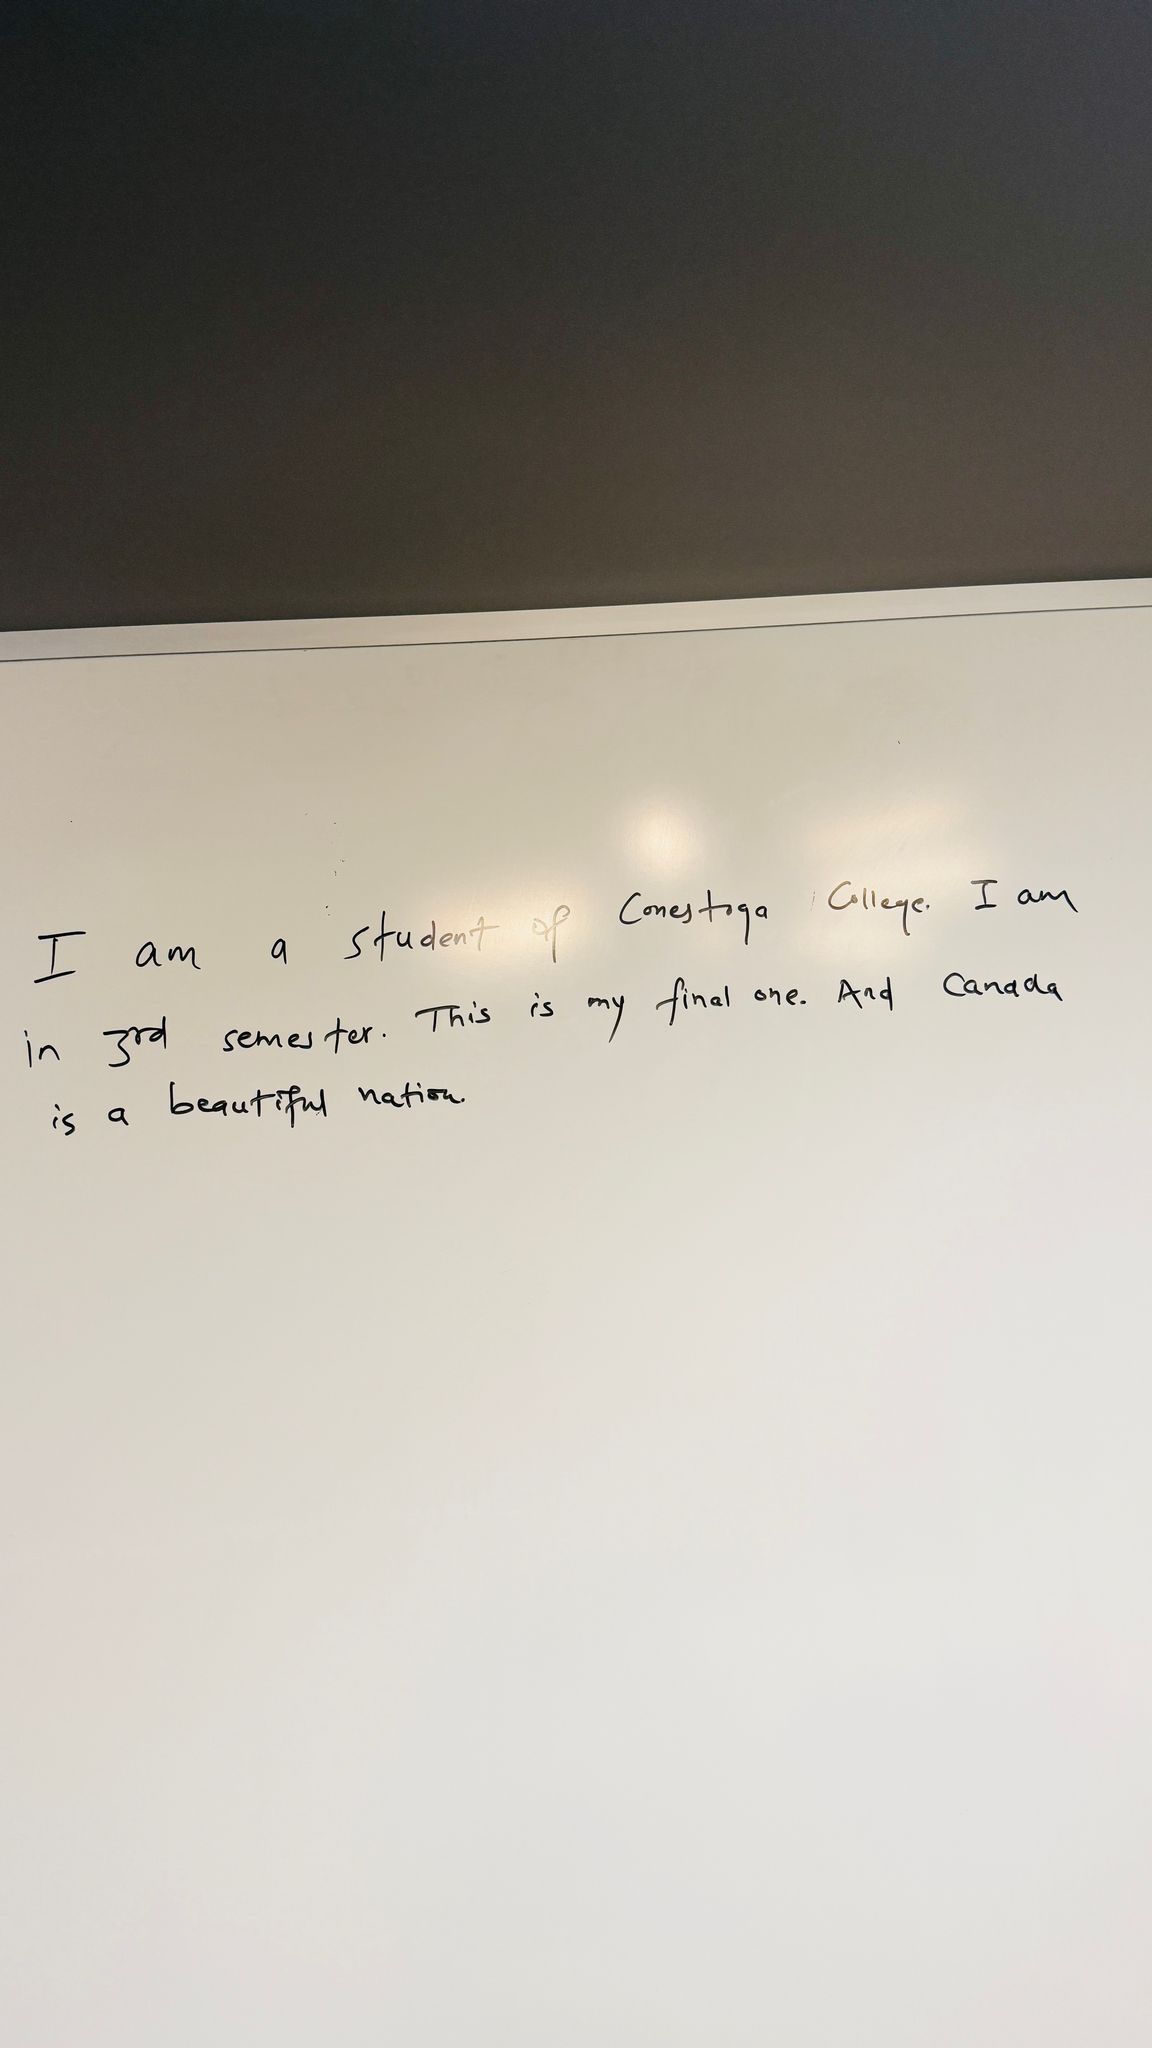 I am a student of Conestoga College. I am
in 3rd semester. This is my final one. And Canada
is a beautiful nation.